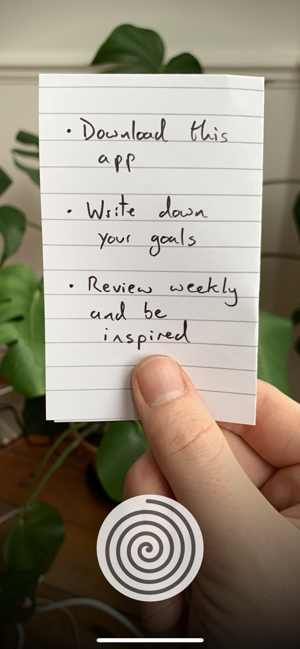 • Download this
app
• Write down
your goals
• Review weekly
and be
inspired